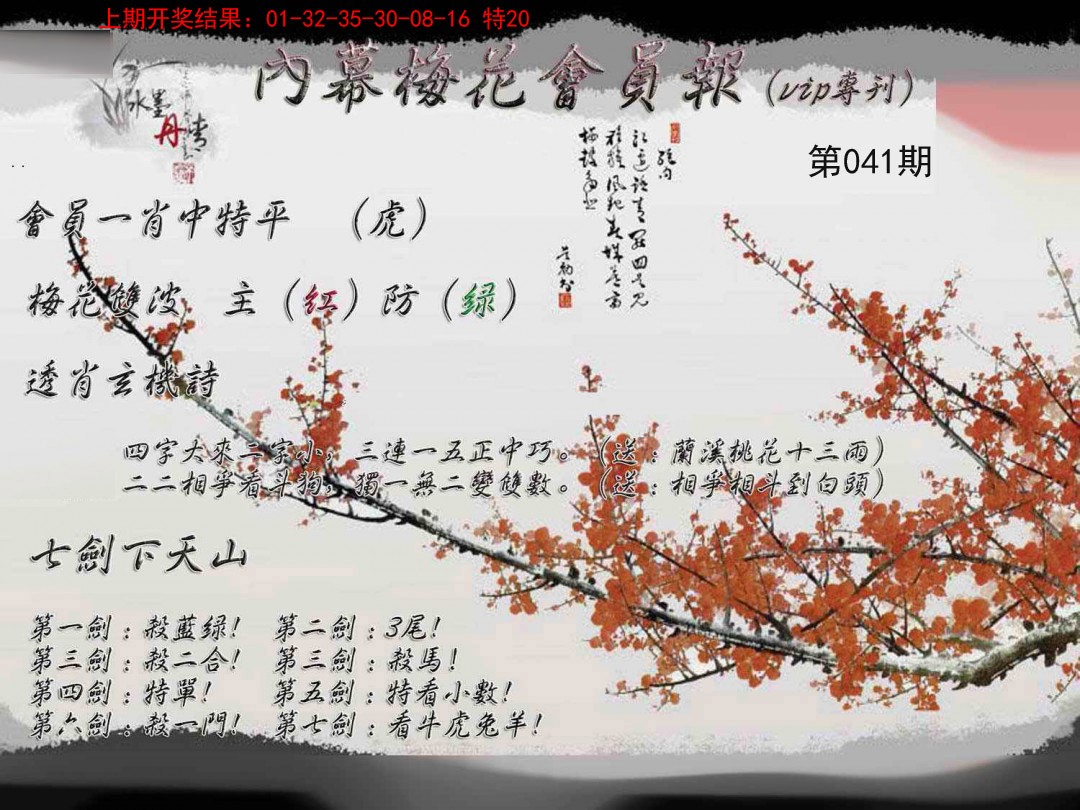 上期开奖结果：01-32-35-30-08-16 特20
內幕梅花會員報（vip專刊）
水墨
丹青
第041期
會員一肖中特平 （虎）
梅花雙波 主（红）防（绿）
透肖玄機詩
四字大來二字小，三連一五正中巧。（送：蘭溪桃花十三雨）
二二相爭看斗狗，獨一無二變雙數。（送：相爭相斗到白頭）
七劍下天山
第一劍：殺藍绿！ 第二劍：3尾！
第三劍：殺二合！ 第三劍：殺馬！
第四劍：特單！ 第五劍：特看小數！
第六劍：殺一門！ 第七劍：看牛虎兔羊！